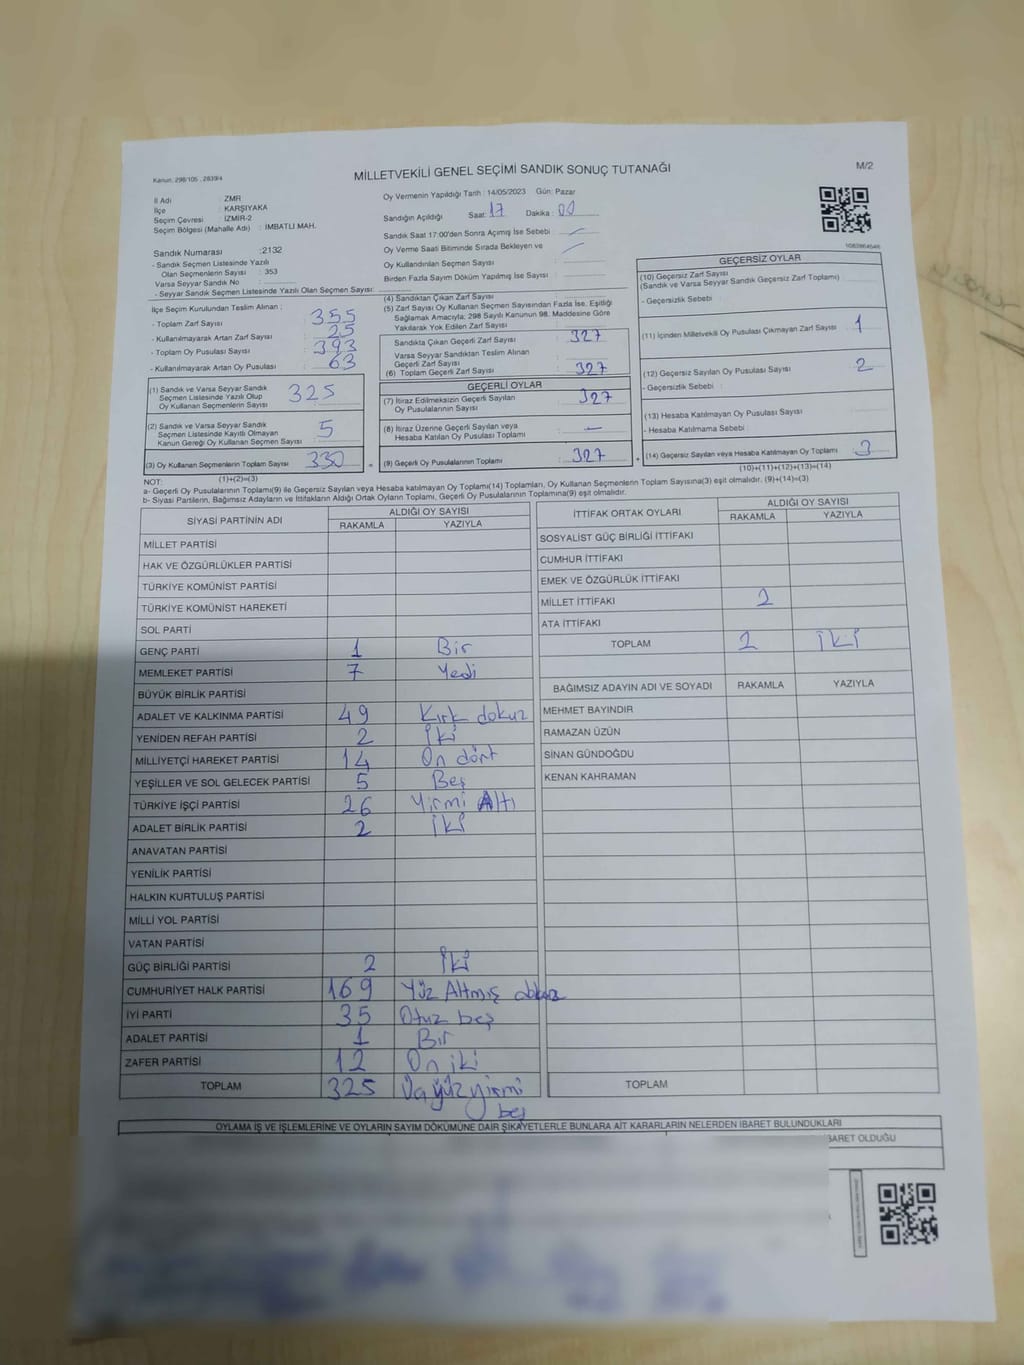 Kanun: 298/105 , 2839/4
MİLLETVEKİLİ GENEL SEÇİMİ SANDIK SONUÇ TUTANAĞI
M/2
İl Adı : ZMR
İlçe : KARŞIYAKA
Seçim Çevresi : İZMİR-2
Seçim Bölgesi (Mahalle Adı) : İMBATLI MAH.
Oy Vermenin Yapıldığı Tarih : 14/05/2023 Gün: Pazar
Sandığın Açıldığı Saat: 17 Dakika : 00
Sandık Saat 17:00'den Sonra Açımış İse Sebebi :
Oy Verme Saati Bitiminde Sırada Bekleyen ve
Oy Kullandırılan Seçmen Sayısı :
Birden Fazla Sayım Döküm Yapılmış İse Sayısı :
Sandık Numarası : 2132
- Sandık Seçmen Listesinde Yazılı
Olan Seçmenlerin Sayısı : 353
Varsa Seyyar Sandık No :
- Seyyar Sandık Seçmen Listesinde Yazılı Olan Seçmen Sayısı:
İlçe Seçim Kurulundan Teslim Alınan :
- Toplam Zarf Sayısı : 355
- Kullanılmayarak Artan Zarf Sayısı : 25
- Toplam Oy Pusulası Sayısı : 393
- Kullanılmayarak Artan Oy Pusulası : 63
(1) Sandık ve Varsa Seyyar Sandık
Seçmen Listesinde Yazılı Olup
Oy Kullanan Seçmenlerin Sayısı : 325
(2) Sandık ve Varsa Seyyar Sandık
Seçmen Listesinde Kayıtlı Olmayan
Kanun Gereği Oy Kullanan Seçmen Sayısı : 5
(3) Oy Kullanan Seçmenlerin Toplam Sayısı : 330
(1)+(2)=(3)
(4) Sandıktan Çıkan Zarf Sayısı
(5) Zarf Sayısı Oy Kullanan Seçmen Sayısından Fazla İse, Eşitliği
Sağlamak Amacıyla; 298 Sayılı Kanunun 98. Maddesine Göre
Yakılarak Yok Edilen Zarf Sayısı :
Sandıkta Çıkan Geçerli Zarf Sayısı : 327
Varsa Seyyar Sandıktan Teslim Alınan
Geçerli Zarf Sayısı :
(6) Toplam Geçerli Zarf Sayısı : 327
GEÇERLİ OYLAR
(7) İtiraz Edilmeksizin Geçerli Sayılan
Oy Pusulalarının Sayısı : 327
(8) İtiraz Üzerine Geçerli Sayılan veya
Hesaba Katılan Oy Pusulası Toplamı : –
= (9) Geçerli Oy Pusulalarının Toplamı : 327 +
1083864546
GEÇERSİZ OYLAR
(10) Geçersiz Zarf Sayısı
(Sandık ve Varsa Seyyar Sandık Geçersiz Zarf Toplamı) :
- Geçersizlik Sebebi :
(11) İçinden Milletvekili Oy Pusulası Çıkmayan Zarf Sayısı : 1
(12) Geçersiz Sayılan Oy Pusulası Sayısı : 2
- Geçersizlik Sebebi :
(13) Hesaba Katılmayan Oy Pusulası Sayısı :
- Hesaba Katılmama Sebebi :
(14) Geçersiz Sayılan veya Hesaba Katılmayan Oy Toplamı : 3
(10)+(11)+(12)+(13)=(14)
NOT:
a- Geçerli Oy Pusulalarının Toplamı(9) ile Geçersiz Sayılan veya Hesaba katılmayan Oy Toplamı(14) Toplamları, Oy Kullanan Seçmenlerin Toplam Sayısına(3) eşit olmalıdır. (9)+(14)=(3)
b- Siyasi Partilerin, Bağımsız Adayların ve İttifakların Aldığı Ortak Oyların Toplamı, Geçerli Oy Pusulalarının Toplamına(9) eşit olmalıdır.
SİYASİ PARTİNİN ADI ALDIĞI OY SAYISI
RAKAMLA YAZIYLA
MİLLET PARTİSİ
HAK VE ÖZGÜRLÜKLER PARTİSİ
TÜRKİYE KOMÜNİST PARTİSİ
TÜRKİYE KOMÜNİST HAREKETİ
SOL PARTİ
GENÇ PARTİ 1 Bir
MEMLEKET PARTİSİ 7 Yedi
BÜYÜK BİRLİK PARTİSİ
ADALET VE KALKINMA PARTİSİ 49 Kırk dokuz
YENİDEN REFAH PARTİSİ 2 İki
MİLLİYETÇİ HAREKET PARTİSİ 14 On dört
YEŞİLLER VE SOL GELECEK PARTİSİ 5 Beş
TÜRKİYE İŞÇİ PARTİSİ 26 Yirmi Altı
ADALET BİRLİK PARTİSİ 2 İki
ANAVATAN PARTİSİ
YENİLİK PARTİSİ
HALKIN KURTULUŞ PARTİSİ
MİLLİ YOL PARTİSİ
VATAN PARTİSİ
GÜÇ BİRLİĞİ PARTİSİ 2 İki
CUMHURİYET HALK PARTİSİ 169 Yüz Altmış dokuz
İYİ PARTİ 35 Otuz beş
ADALET PARTİSİ 1 Bir
ZAFER PARTİSİ 12 On iki
TOPLAM 325 Üçyüzyirmi
beş
İTTİFAK ORTAK OYLARI ALDIĞI OY SAYISI
RAKAMLA YAZIYLA
SOSYALİST GÜÇ BİRLİĞİ İTTİFAKI
CUMHUR İTTİFAKI
EMEK VE ÖZGÜRLÜK İTTİFAKI
MİLLET İTTİFAKI 2
ATA İTTİFAKI
TOPLAM 2 İKİ
BAĞIMSIZ ADAYIN ADI VE SOYADI RAKAMLA YAZIYLA
MEHMET BAYINDIR
RAMAZAN ÜZÜN
SİNAN GÜNDOĞDU
KENAN KAHRAMAN
TOPLAM
OYLAMA İŞ VE İŞLEMLERİNE VE OYLARIN SAYIM DÖKÜMÜNE DAİR ŞİKAYETLERLE BUNLARA AİT KARARLARIN NELERDEN İBARET BULUNDUKLARI
BARET OLDUĞU